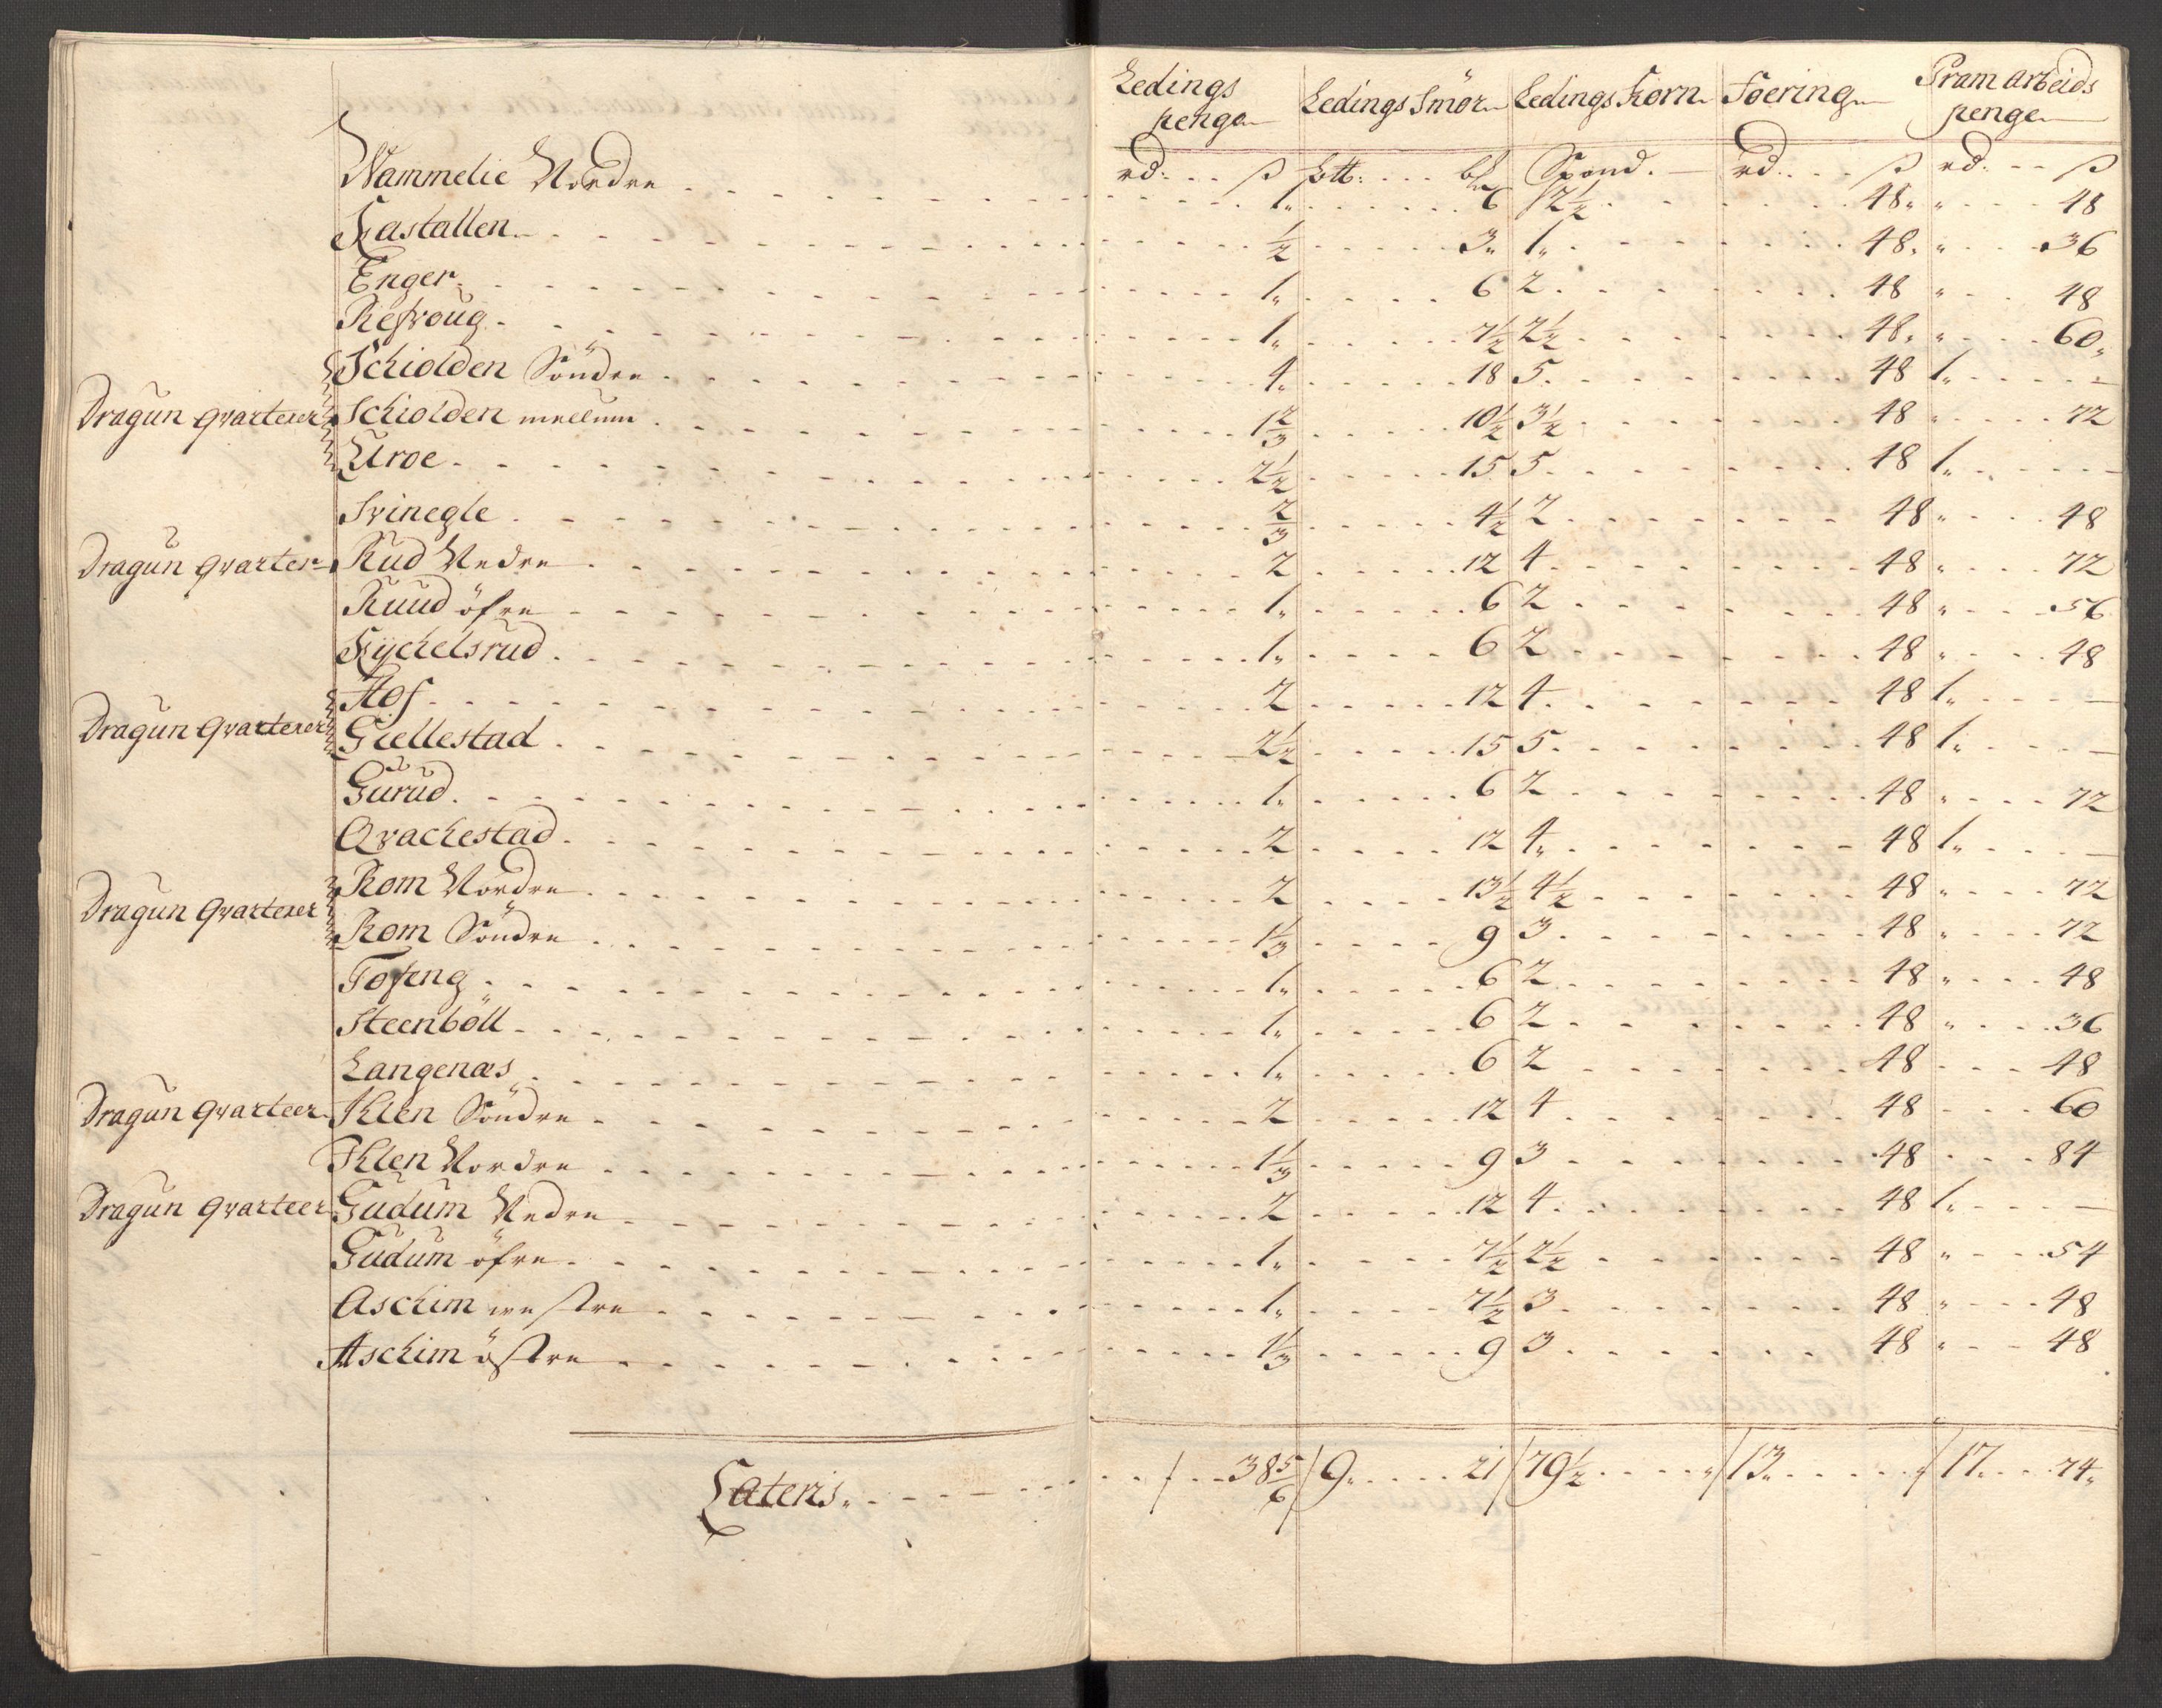 Ledings penge Ledings Smör Ledings Korn Foering Pram Arbeids penge
rd: ß ℔: bl Spand. rd. ß rd: ß
Wammelie Nordre 1„ 6 2½ 48„ „ 48
Kastallen ½ 3„ 1„ 48„ „ 36
Enger 1„ 6 2 48 „ 48
Refvoug 1„ 7½ 2½ 48„ „ 60„
Schiolden Söndre 4„ 18 5 48 1„ —
Dragun qvarterer Schiolden mellum 1⅔ 10½ 3½ 48 „ 72
Uroe 2½ 15 5 48 1„ —
Svinegle ⅔ 4½ 2 48 „ 48
Dragun qvarter Rud Nedre 2 12 4 48 „ 72
Ruud öfre 1„ 6 2 48 „ 56
Kychelsrud 1„ 6 2 48 „ 48
Hof 2 12 4 48 1„ —
Dragun qvarterer Giellestad 2½ 15 5 48 1„ —
Gurud 1„ 6 2 48 „ 72
Qvachestad 2 12 4„ 48 1„ —
Rom Nordre 2 13½ 4½ 48 „ 72
Dragun Qvarterer Rom Söndre 1⅓ 9 3 48 „ 72
Tofeng 1„ 6 2 48 „ 48
Steenböll 1„ 6 2 48 „ 36
Langenæs 1„ 6 2 48 48
Dragun qvarteer Klen Söndre 2 12 4 48 60
Klen Nordre 1⅓ 9 3 48 84
Dragun qvarteer Gudum Nedre 2 12 4 48 1„ —
Gudum öfre 1„ 7½ 2½ 48 „ 54
Aschim westre 1„ 7½ 3 48 „ 48
Aschim östre 1⅓ 9 3 48 „ 48
Lateris„ 38⅚ 9„ 21 79½ „ 13„ „ 17 74„